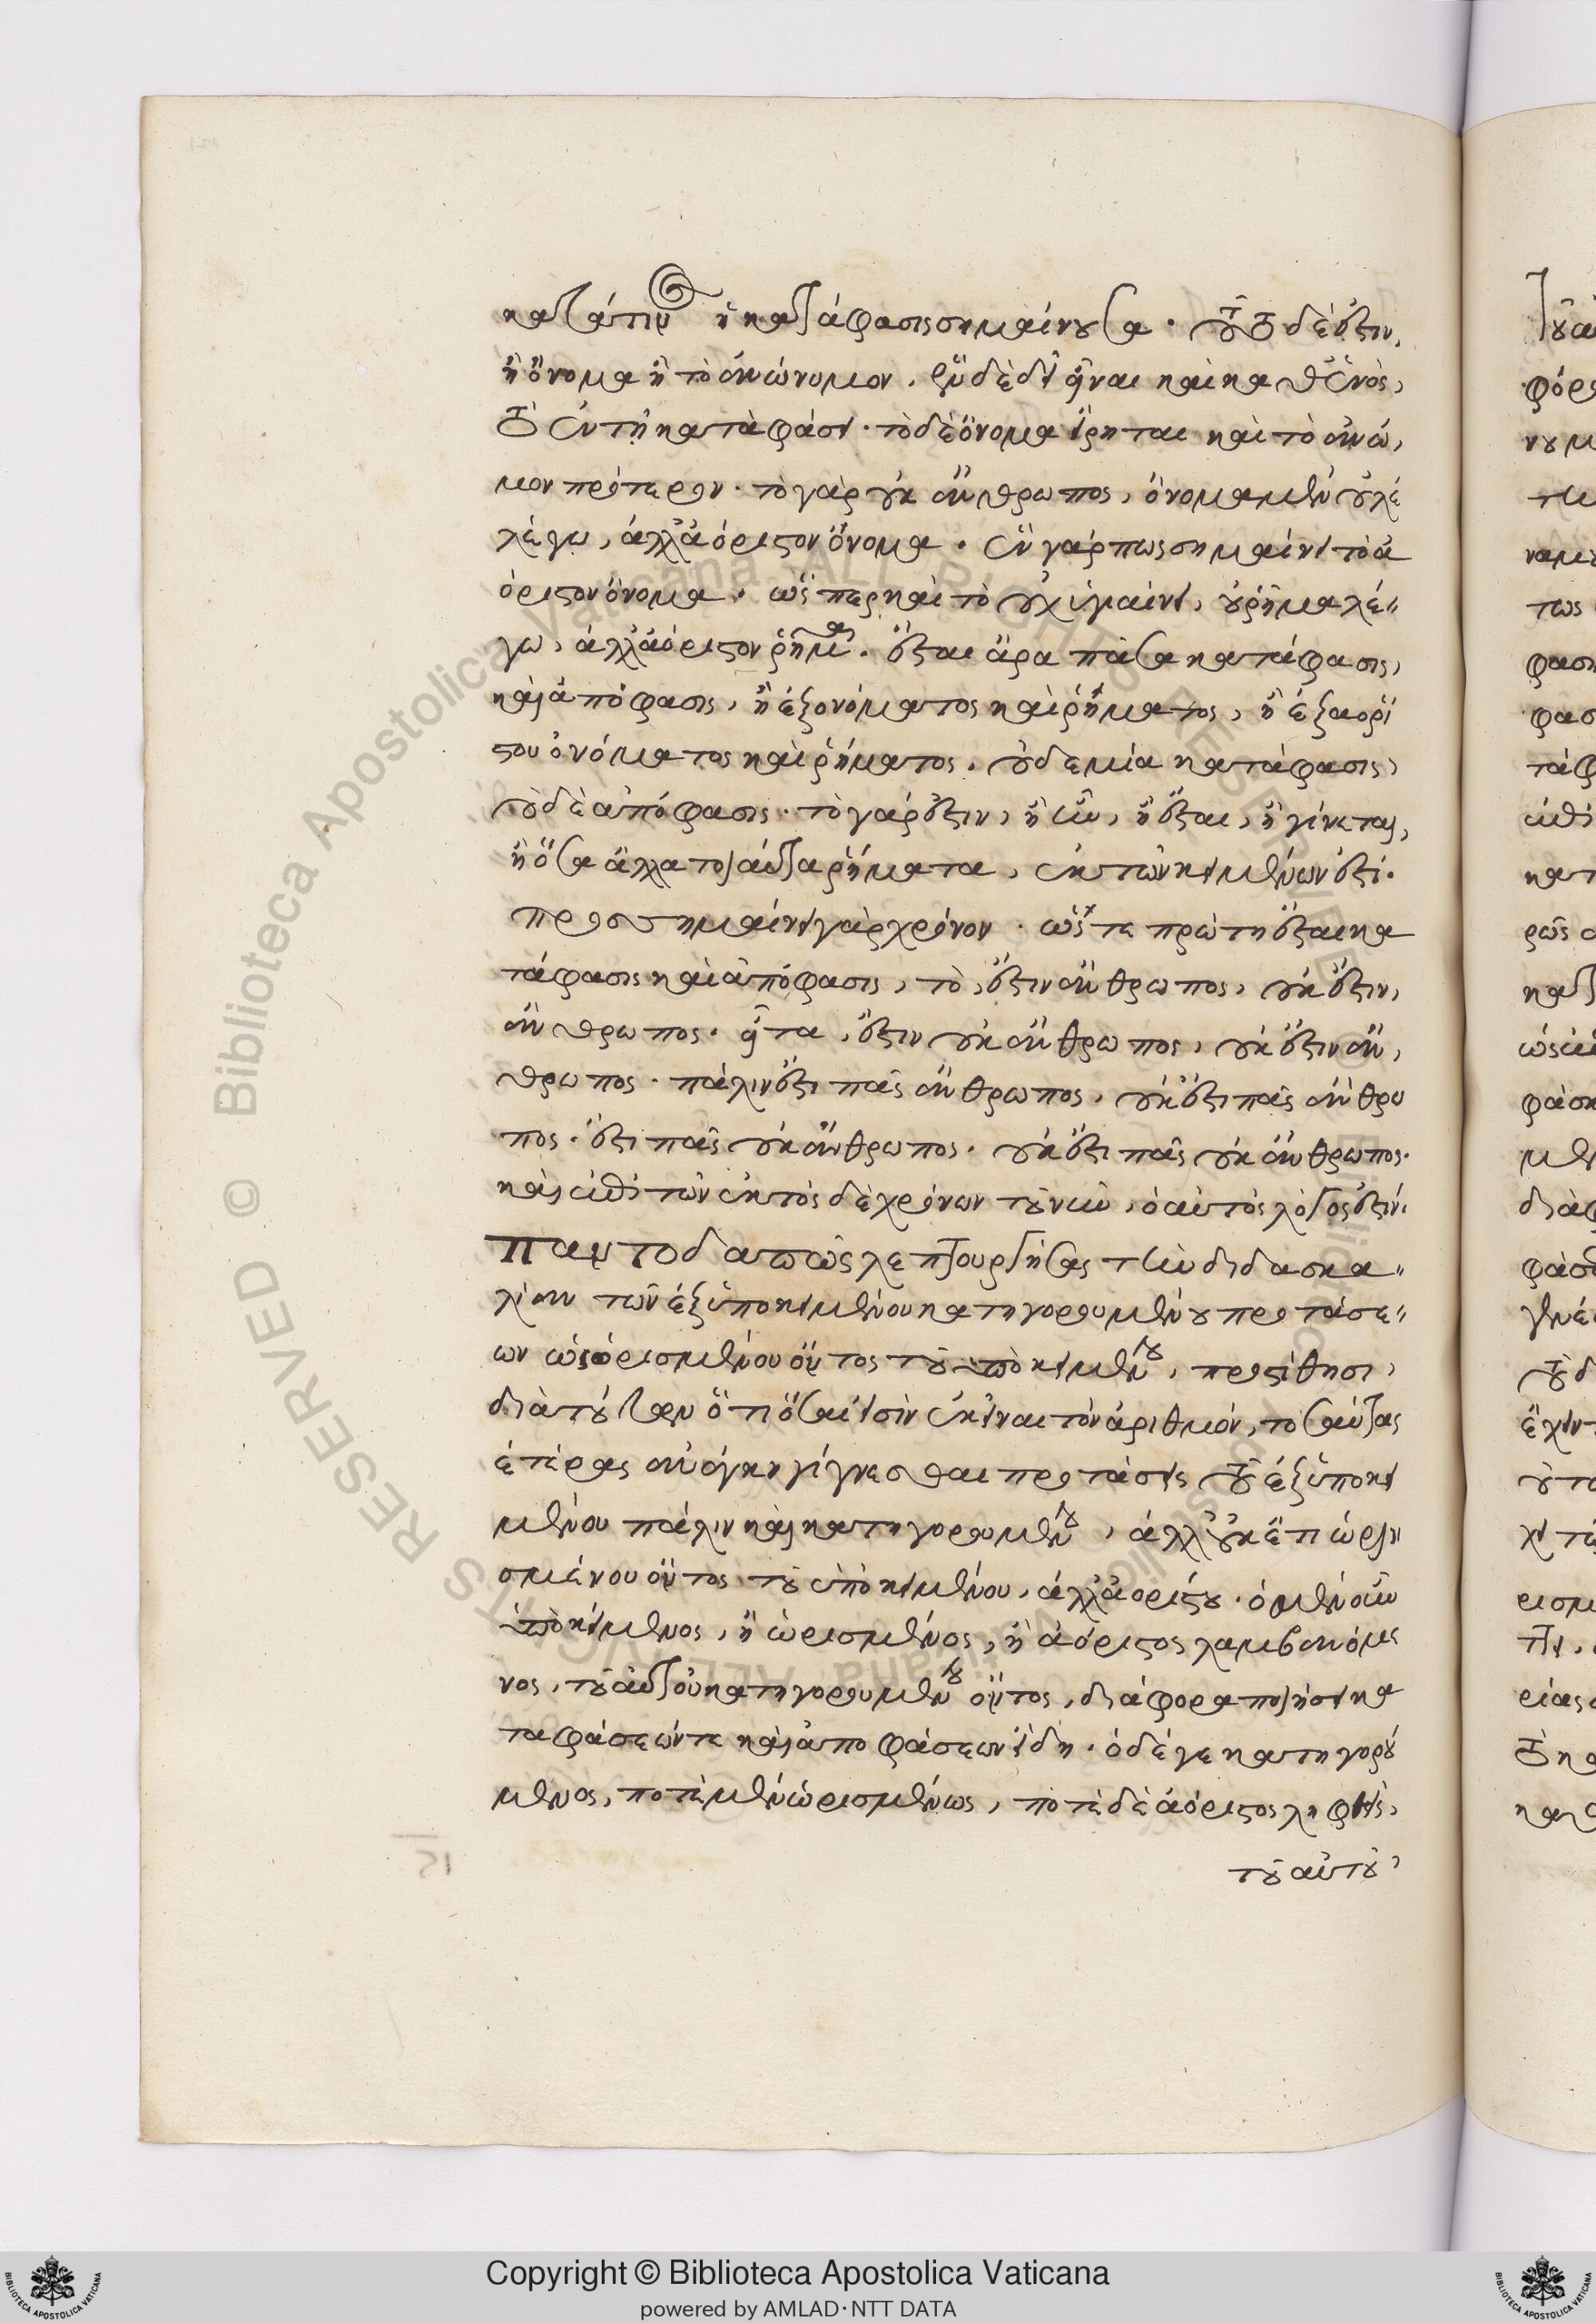 κατά τινος ἡ κατάφασις σημαίνουσα. τοῦτο δ' ἐστὶν,
ἢ ὄνομα ἢ τὸ ἀνώνυμον. ἓν δὲ δεῖ εἶναι καὶ καθ' ἑνὸς,
τὸ ἐν τῇ καταφάσει. τὸ δὲ ὄνομα εἴρηται καὶ τὸ ἀνώ,
μον πρότερον. τὸ γὰρ οὐκ ἄνθρωπος, ὄνομα μὲν οὐ λέ
λέγω, ἀλλ' ἀόριστον ὄνομα. ἓν γάρ πως σημαίνει τὸ ἀ
όριστον ὄνομα. ὥσπερ καὶ τὸ οὐχ ὑγιαίνει, οὐ ῥῆμα λέ-
γω, ἀλλ' ἀόριστον ῥῆμα. ἔσται ἄρα πᾶσα κατάφασις,
καὶ ἀπόφασις, ἢ ἐξ ὀνόματος καὶ ῥήματος, ἢ ἐξ ἀορί
στου ὀνόματος καὶ ῥήματος. οὐδεμία κατάφασις,
οὐδὲ ἀπόφασις. τὸ γὰρ ἔστιν, ἢ ἦν, ἢ ἔσται, ἢ γίνεται,
ἢ ὅσα ἄλλα τοιαῦτα ῥήματα, ἐκ τῶν κειμένων ἐστί.
προσσημαίνει γὰρ χρόνον. ὥστε πρώτη ἔσται κα
τάφασις καὶ ἀπόφασις, τὸ, ἔστιν ἄνθρωπος, οὐκ ἔστιν,
ἄνθρωπος. εἶτα, ἔστιν οὐκ ἄνθρωπος, οὐκ ἔστιν ἄν,
θρωπος. πάλιν ἔστι πᾶς ἄνθρωπος, οὐκ ἔστι πᾶς ἄνθρω
πος. ἔστι πᾶς οὐκ ἄνθρωπος. οὐκ ἔστι πᾶς οὐκ ἄνθρωπος.
καὶ ἐπὶ τῶν ἐκτὸς δὲ χρόνων τοῦ νῦν, ὁ αὐτὸς λόγος ἐστίν.
Παντοδαπῶς λεπτουργήσας τὴν διδασκα-
λίαν τῶν ἐξ ὑποκειμένου κατηγορουμένου προτάσε-
ων ὡς ὁρισμένου ὄντος τοῦ ὑποκειμένου, προστίθησι,
διὰ τούτων ὅτι ὅσαι εἰσὶν ἐκεῖναι τὸν ἀριθμόν, τοσαύτας
ἑτέρας ἀνάγκη γίγνεσθαι προτάσεις τοῦ ἐξ ὑποκει
μένου πάλιν καὶ κατηγορουμένου, ἀλλ' οὐκ ἔτι ὡρι-
σμένου ὄντος τοῦ ὑποκειμένου, ἀλλ' ἀορίστου. ὁ μὲν οὖν
ὑποκείμενος, ἢ ὡρισμένος, ἢ ἀόριστος λαμβανόμε
νος, τοῦ αὐτοῦ κατηγορουμένου ὄντος, διάφορα ποιήσει κα
ταφάσεών τε καὶ ἀποφάσεων εἴδη. ὁ δέ γε κατηγορού
μενος, ποτὲ μὲν ὡρισμένως, ποτὲ δὲ ἀόριστος ληφθεὶς,
τοῦ αὐτοῦ,